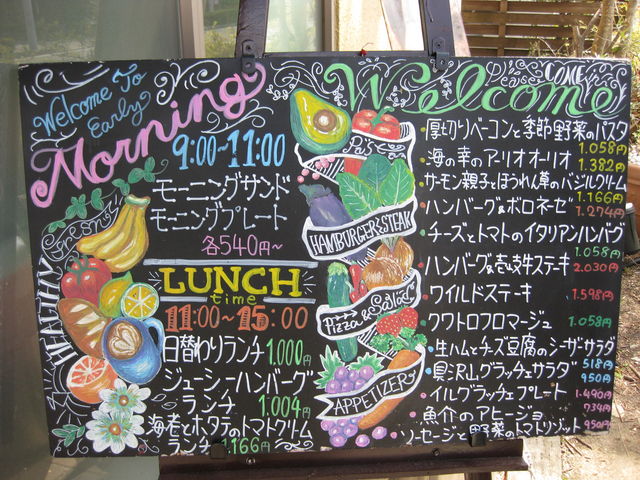 Welcome To
Early
Morning
9:00~11:00
モーニングサンド
モーニングプレート
各540円~
LUNCH
time
11:00~15:00
日替わりランチ 1.000円
ジューシーハンバーグ
ランチ 1.004円
海老とホタテのトマトクリーム
ランチ 1.166円
HEALTHY
Pasta
HAMBURGER & STEAK
Pizza & Salad
APPETIZER
Welcome
Please COME in
・厚切りベーコンと季節野菜のパスタ
1.058円
・海の幸のアーリオオーリオ 1.382円
・サーモン親子とほうれん草のバジルクリーム
1.166円
・ハンバーグ&ボロネーゼ 1.274円
・チーズとトマトのイタリアンハンバーグ
1.058円
・ハンバーグ&壱岐牛ステーキ 2.030円
・ワイルドステーキ 1.598円
・クワトロフロマージュ 1.058円
・生ハムとチーズ豆腐のシーザーサラダ
518円
・具沢山グラッチェサラダ 950円
・イルグラッチェプレート 1.490円
734円
・魚介のアヒージョ
・ソーセージと野菜のトマトリゾット 950円